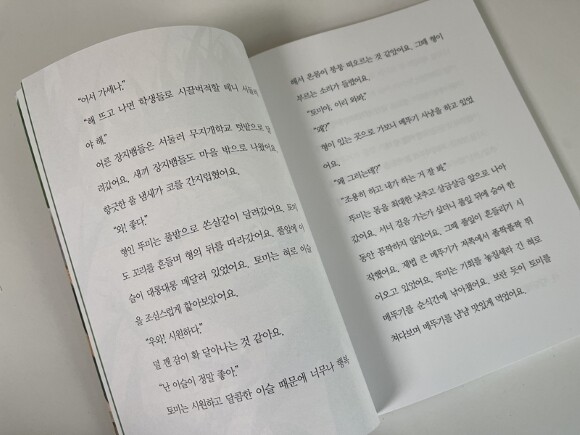 "어서 가세나."
"해 뜨고 나면 학생들로 시끌벅적할 테니 서둘러
야 해."
어른 장지뱀들은 서둘러 무지개학교 텃밭으로 달
려갔어요. 새끼 장지뱀들도 마을 밖으로 나왔어요.
향긋한 풀 냄새가 코를 간지럽혔어요.
"와! 좋다."
형인 뚜미는 풀밭으로 쏜살같이 달려갔어요. 토미
도 꼬리를 흔들며 형의 뒤를 따라갔어요. 풀잎에 이
슬이 대롱대롱 매달려 있었어요. 토미는 혀로 이슬
을 조심스럽게 핥아보았어요.
"우와! 시원하다."
덜 깬 잠이 확 달아나는 것 같아요.
"난 이슬이 정말 좋아."
토미는 시원하고 달콤한 이슬 때문에 너무나 행복
해서 온몸이 붕붕 떠오르는 것 같았어요. 그때 형이
부르는 소리가 들렸어요.
"토미야, 이리 와봐."
"왜?"
형이 있는 곳으로 가보니 메뚜기 사냥을 하고 있었
어요.
"왜 그러는데?"
"조용히 하고 내가 하는 거 잘 봐."
뚜미는 몸을 최대한 낮추고 살금살금 앞으로 나아
갔어요. 서너 걸음 가는가 싶더니 풀잎 뒤에 숨어 한
동안 꼼짝하지 않았어요. 그때 풀잎이 흔들리기 시
작했어요. 제법 큰 메뚜기가 좌쪽에서 폴짝폴짝 뛰
어오고 있었어요. 뚜미는 기회를 놓칠세라 긴 혀로
메뚜기를 순식간에 낚아챘어요. 보란 듯이 토미를
쳐다보며 메뚜기를 냠냠 맛있게 먹었어요.